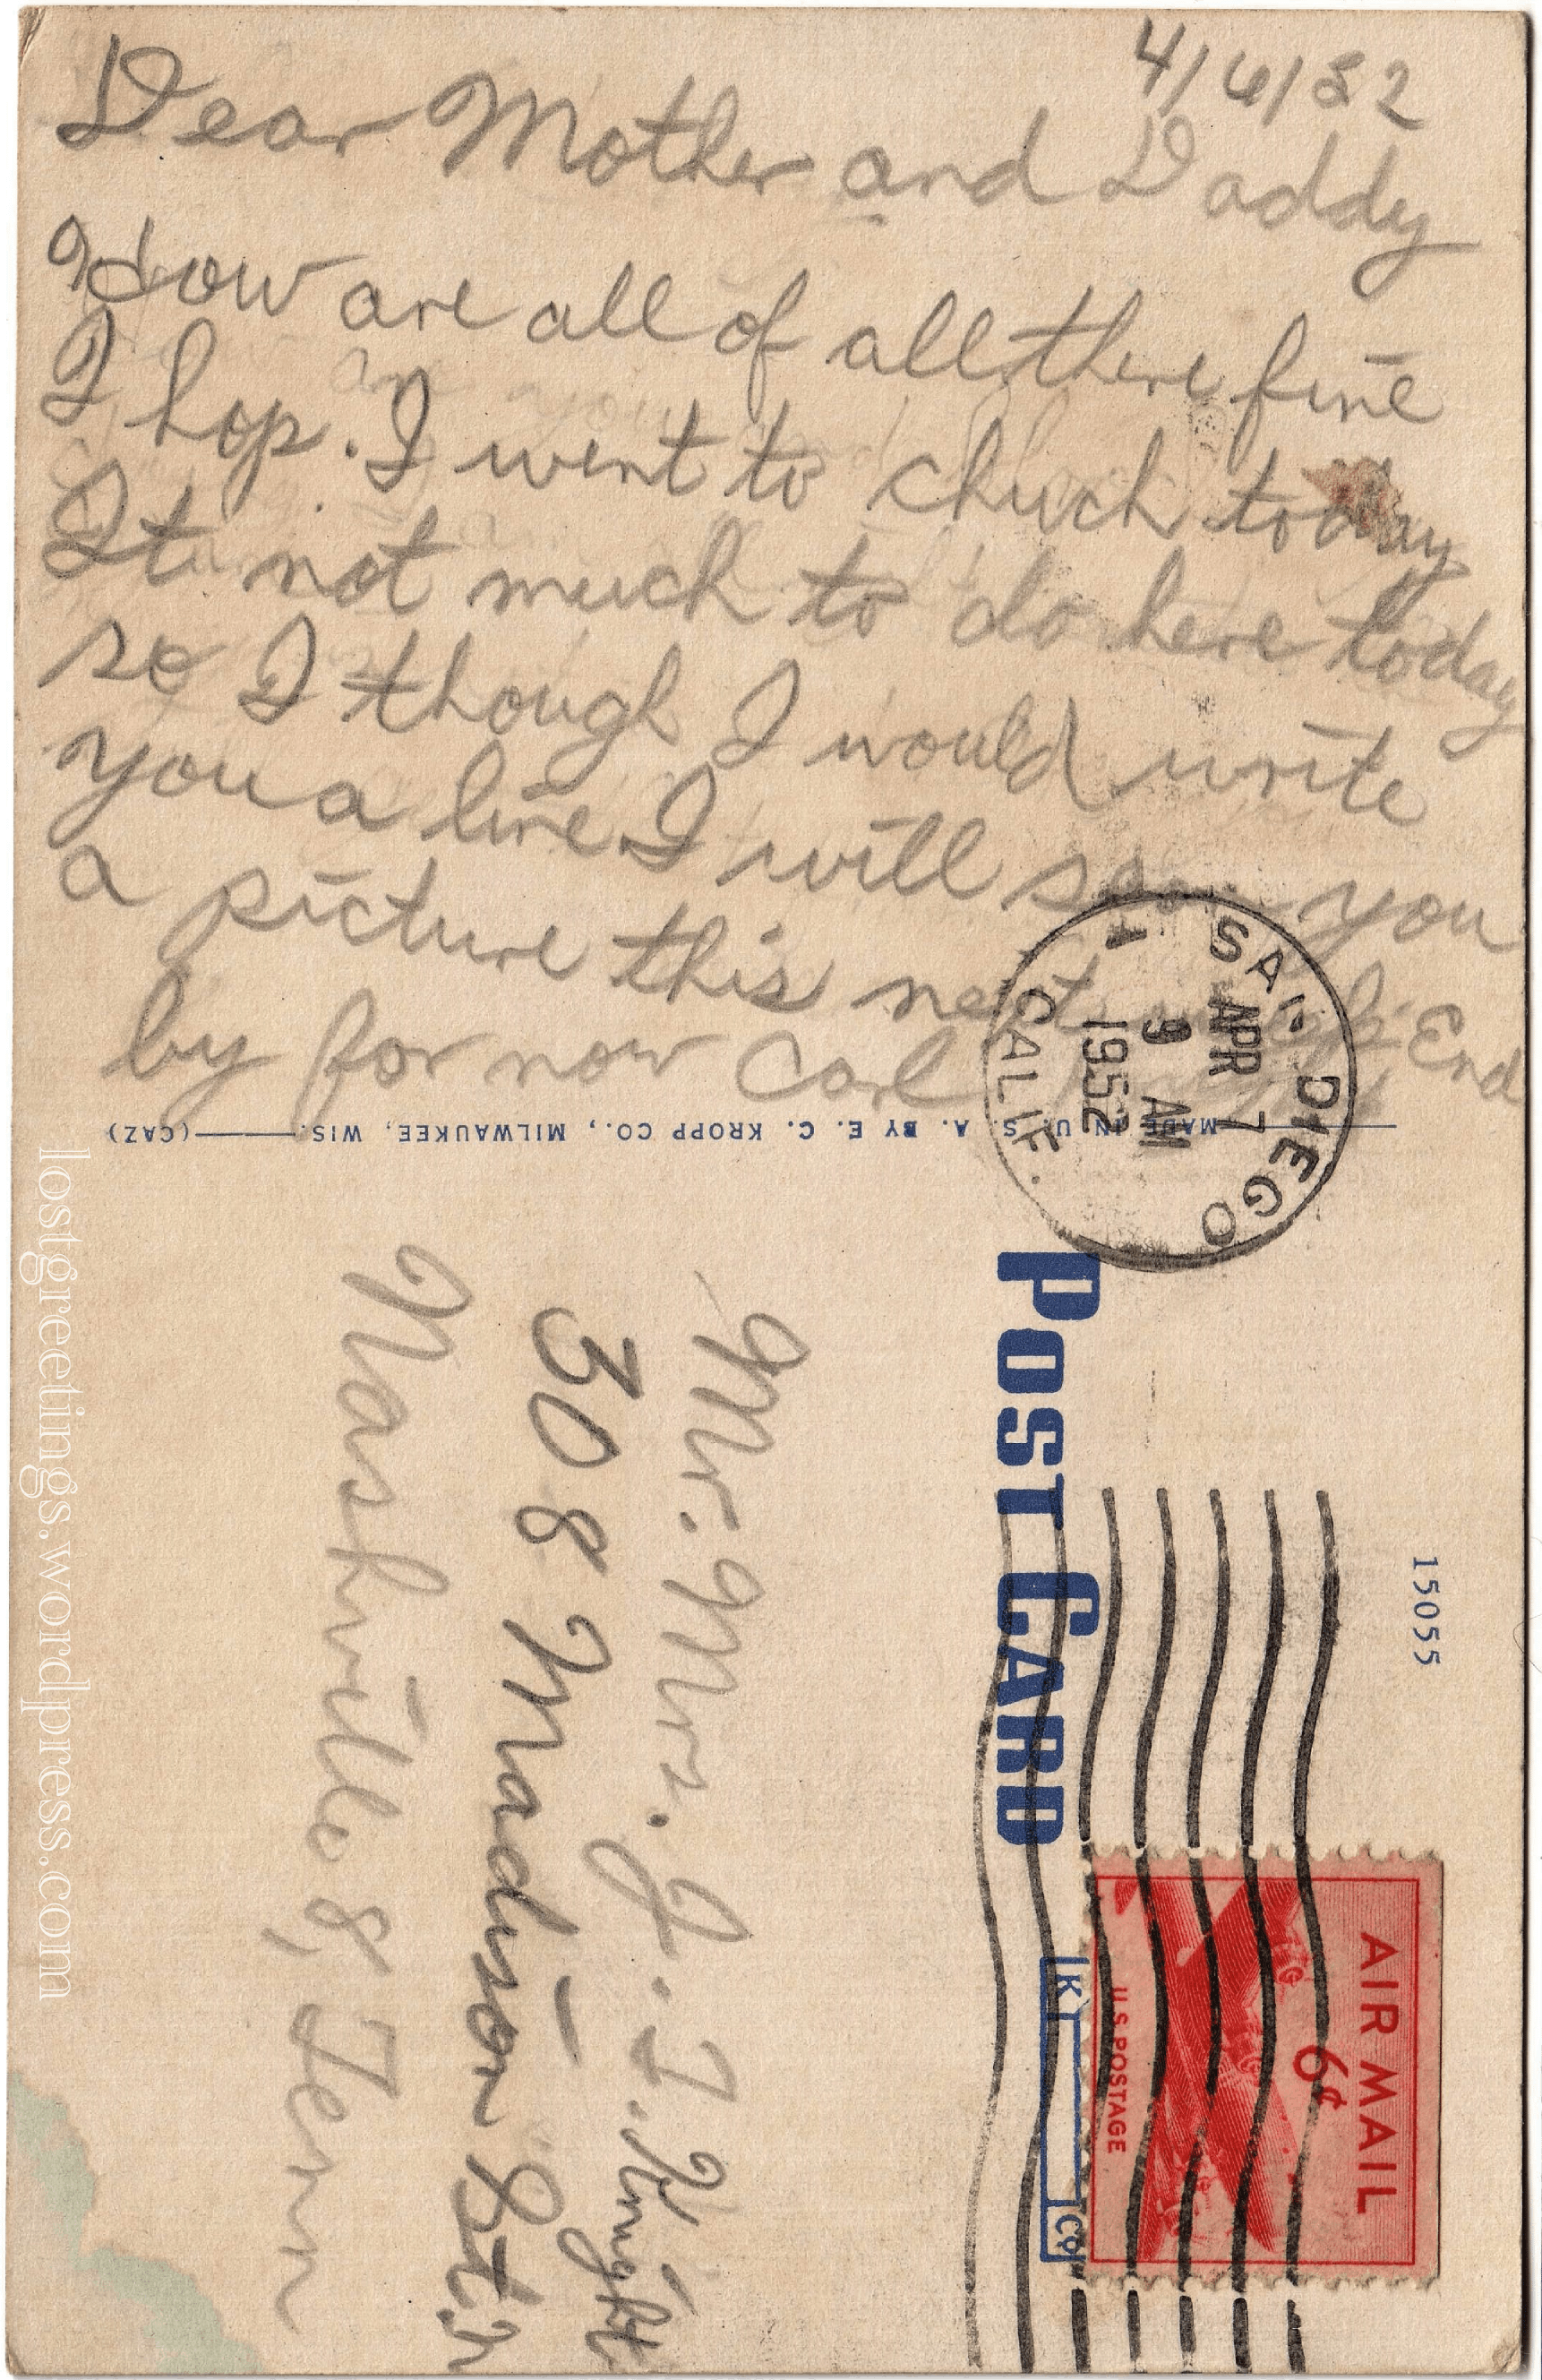 4/6/52
Dear Mother and Daddy
How are all of all there fine
I hop. I went to chuch today
It not much to do here today
so I though I would write
you a line I will you
a picture this next End
by for now Carl
MADE IN U. S. A. BY E. C. KROPP CO., MILWAUKEE, WIS. (CAZ)
SAN DIEGO
CALIF.
APR 7
9 AM
1952
POST CARD
15055
AIR MAIL
6¢
U.S. POSTAGE
Mr. Mrs. J. T. Knight
308 Madison St.
Nashville 8, Tenn
lostgreetings.wordpress.com